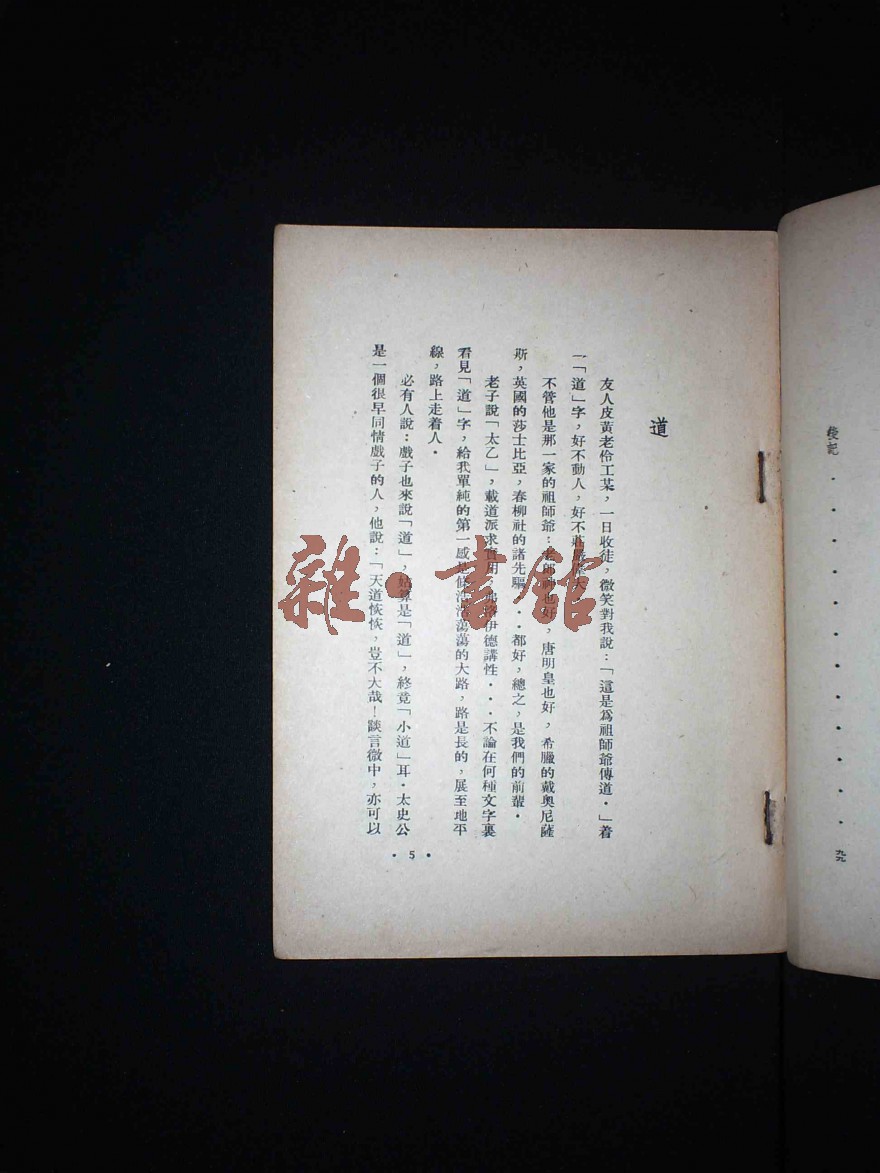 後記・・・・・・・・・・・・・・九九
道
友人皮黃老伶工某，一日收徒，微笑對我說：「這是爲祖師爺傳道・」着
一「道」字，好不動人，好不莊嚴
不管他是那一家的祖師爺：老郎神也好，唐明皇也好，希臘的戴奧尼薩
斯，英國的莎士比亞，春柳社的諸先驅・・・都好，總之，是我們的前輩・
老子說「太乙」，載道派求實用，弗洛伊德講性・・・不論在何種文字裏
看見「道」字，給我單純的第一感是條浩浩蕩蕩的大路，路是長的，展至地平
線，路上走着人・
必有人說：戲子也來說「道」，姑算是「道」，終竟「小道」耳・太史公
是一個很早同情戲子的人，他說：「天道恢恢，豈不大哉！談言微中，亦可以
・5・
雜・書館